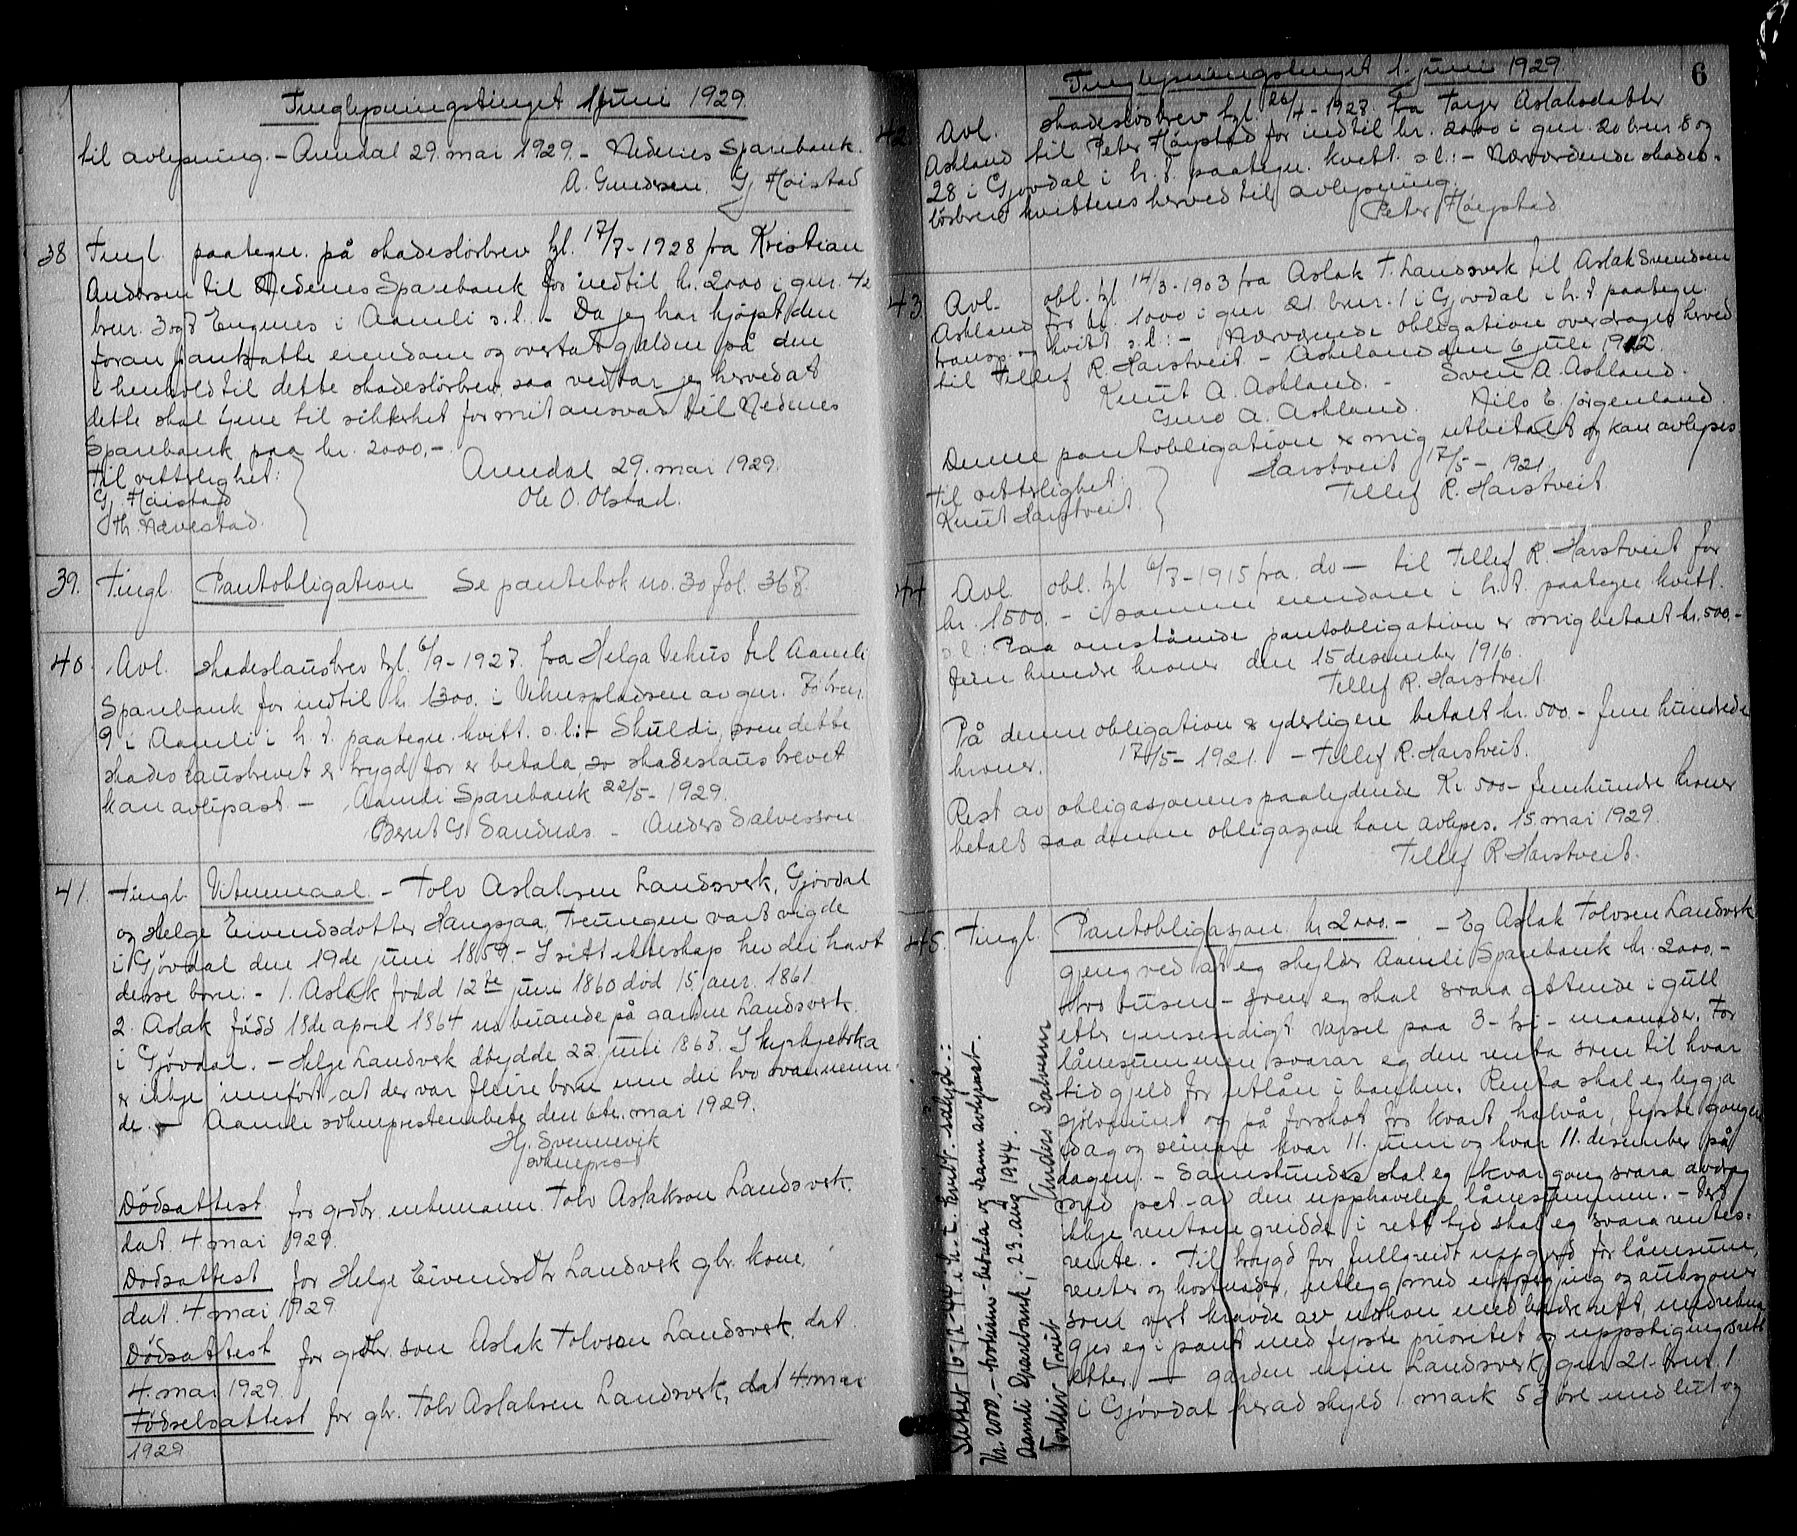 Tinglysningstinget 1 juni 1929.
til avlysning. - Arendal 29. mai 1929. - Nedenes Sparebank.
A. Gundersen. Gj. Høistad
38 Tingl. paategn. på skadesløsbrev tgl. 17/7 - 1928 fra Kristian
Andersen til Nedenes Sparebank for indtil kr. 2000 i gnr. 42
brnr. 3 og 7 Engenes i Aamli s.l. - Da jeg har kjøpt den
foran pantsatte eiendom og overtat gjælden på den
i henhold til dette skadesløsbrev, saa vedtar jeg herved at
dette skal tjene til sikkerhet for mit ansvar til Nedenes
Sparebank paa kr. 2000,-
Til vitterlighet: Arendal 29. mai 1929.
Gj. Høistad Ole O. Olstad.
Th. Nævestad.
39. Tingl. Pantobligation Se pantebok no. 30 fol. 368.
40. Avl. skadeslausbrev tgl. 6/9 - 1927. fra Helga Vehus til Aamli
Sparebank for indtil kr. 1300. i Vehuspladsen av gnr. brnr.
9 i Aamli i h. t. paategn. kvitt. s.l.: - Skuldi, som dette
skadeslausbrevet er trygd for er betala, so skadeslausbrevet
kan avlysast - Aamli Sparebank 22/5 - 1929.
Bernt G. Sandnes - Anders Salvesson
41. Tingl. Vitnemaal - Tolv Aslaksen Landsverk, Gjøvdal
og Helge Eivendsdotter Haugsjaa, Treungen vart vigde
i Gjøvdal den 19de juni 1859. - I sitt ekteskap hev dei havt
desse born: - 1. Aslak fødd 12te juni 1860 død 15 janr. 1861.
2. Aslak fødd 18de april 1864 no buande på garden Landsverk
i Gjøvdal. - Helge Landsverk døydde 22 juni 1868. I kyrkjeboka
er ikkje innført at der var fleire born enn dei tvo ovannemn-
de. - Aamli sokneprestembete den 6te. mai 1929.
Hj. Svennevik
sokneprest
Dødsattest for grdbr. enkemann Tolv Aslakson Landsverk
dat. 4 mai 1929.
Dødsattest for Helge Eivendsdtr Landsverk gbr. kone,
dat. 4 mai 1929
Dødsattest for grdbr. søn Aslak Tolvsen Landsverk, dat.
4. mai 1929.
Fødselsattest for gbr. Tolv Aslaksen Landsverk, dat 4 mai
1929
6
Tinglysningstinget 1. juni 1929
42. Avl. skadesløsbrev tgl. 26/7 - 1927. fra Torjer Aslaksdatter
Askland til Peter Høystad for indtil kr. 2000 i gnr. 20 brnr 8 og
28 i Gjøvdal i h. t. paategn. kvitt. s.l.: - Nærværende skades-
løsbrev kvitteres herved til avlysning.
Peter Høystad
43. Avl. obl. tgl 14/3 - 1903 fra Aslak T. Landsverk til Aslak Svendsen
Askland for kr. 1000 i gnr 21. brnr. 1 i Gjøvdal i h. t paategn.
transp. og kvitt s.l: - Nærværende obligation overdrages herved
til Tellef R. Harstveit - Askland den 6 juli 1912.
Knut A. Askland. - Sven A. Askland.
Guro A. Askland. Nils E. Jørgenland.
Denne pantobligation er mig utbetalt og kan avlyses
Harstveit 17/5 - 1921
Til vitterlighet: Tellef R. Harstveit
Knut Harstveit.
44 Avl obl. tgl 6/3 - 1915 fra. do - til Tellef R. Harstveit for
kr. 1500. - i samme eiendom i h. t. paategn kvitt.
s.l: Paa omstående pantobligation er mig betalt kr. 500,-
fem hundre kroner den 15 desember 1916.
Tellef R. Harstveit
På denne obligation er yderligere betalt kr. 500 - fem hundrede
kroner. 17/5 - 1921. - Tellef R. Harstveit.
Rest av obligasjonens paalydende Kr. 500 - femhundre kroner
betalt saa denne obligasjon kan avlyses. 15 mai 1929.
Tellef R Harstveit.
45. Tingl. Pantobligasjon kr 2000. - - Eg Aslak Tolvsen Landsverk
gjeng ved at eg skylder Aamli Sparebank kr. 2000,-
tvo tusen - som eg skal svara attende i gull
etter gjensidigt varsel paa 3 - tri - maanader. For
lånesummen svarar eg den renta som til kvar
tid gjeld for utlån i banken. Renta skal eg leggja
sjølvmint og på forskot for kvart halvår, fyrste gongen
idag og seinare kvar 11. juni og kvar 11. desember på
dagen. - Samstundes skal eg kvar gong svara avdrag
med pct. av den upphavelege lånesummen. - Vert
ikkje rentone greidde i rett tid skal eg svara rentes-
rente. - Til trygd for fullgreidt uppgjerd for lånesum,
renter og kostnader, utlegg med uppsøging og auksjoner
som vert kravde av nokon med betre rett, medrekna
gjev eg i pant med fyrste prioritet og uppstigingsrett
etter - garden min Landsverk, gnr 21. brnr. 1
i Gjøvdal herad skyld 1 mark 53 øre med lut og
Slettet 15/2-44 i h. t. kvitt. sålyd..:
Kr. 2000. - totusen - betala og kann avlysast.
Aamli Sparebank, 23. aug 1944.
Torleiv Tveit Anders Salvesen